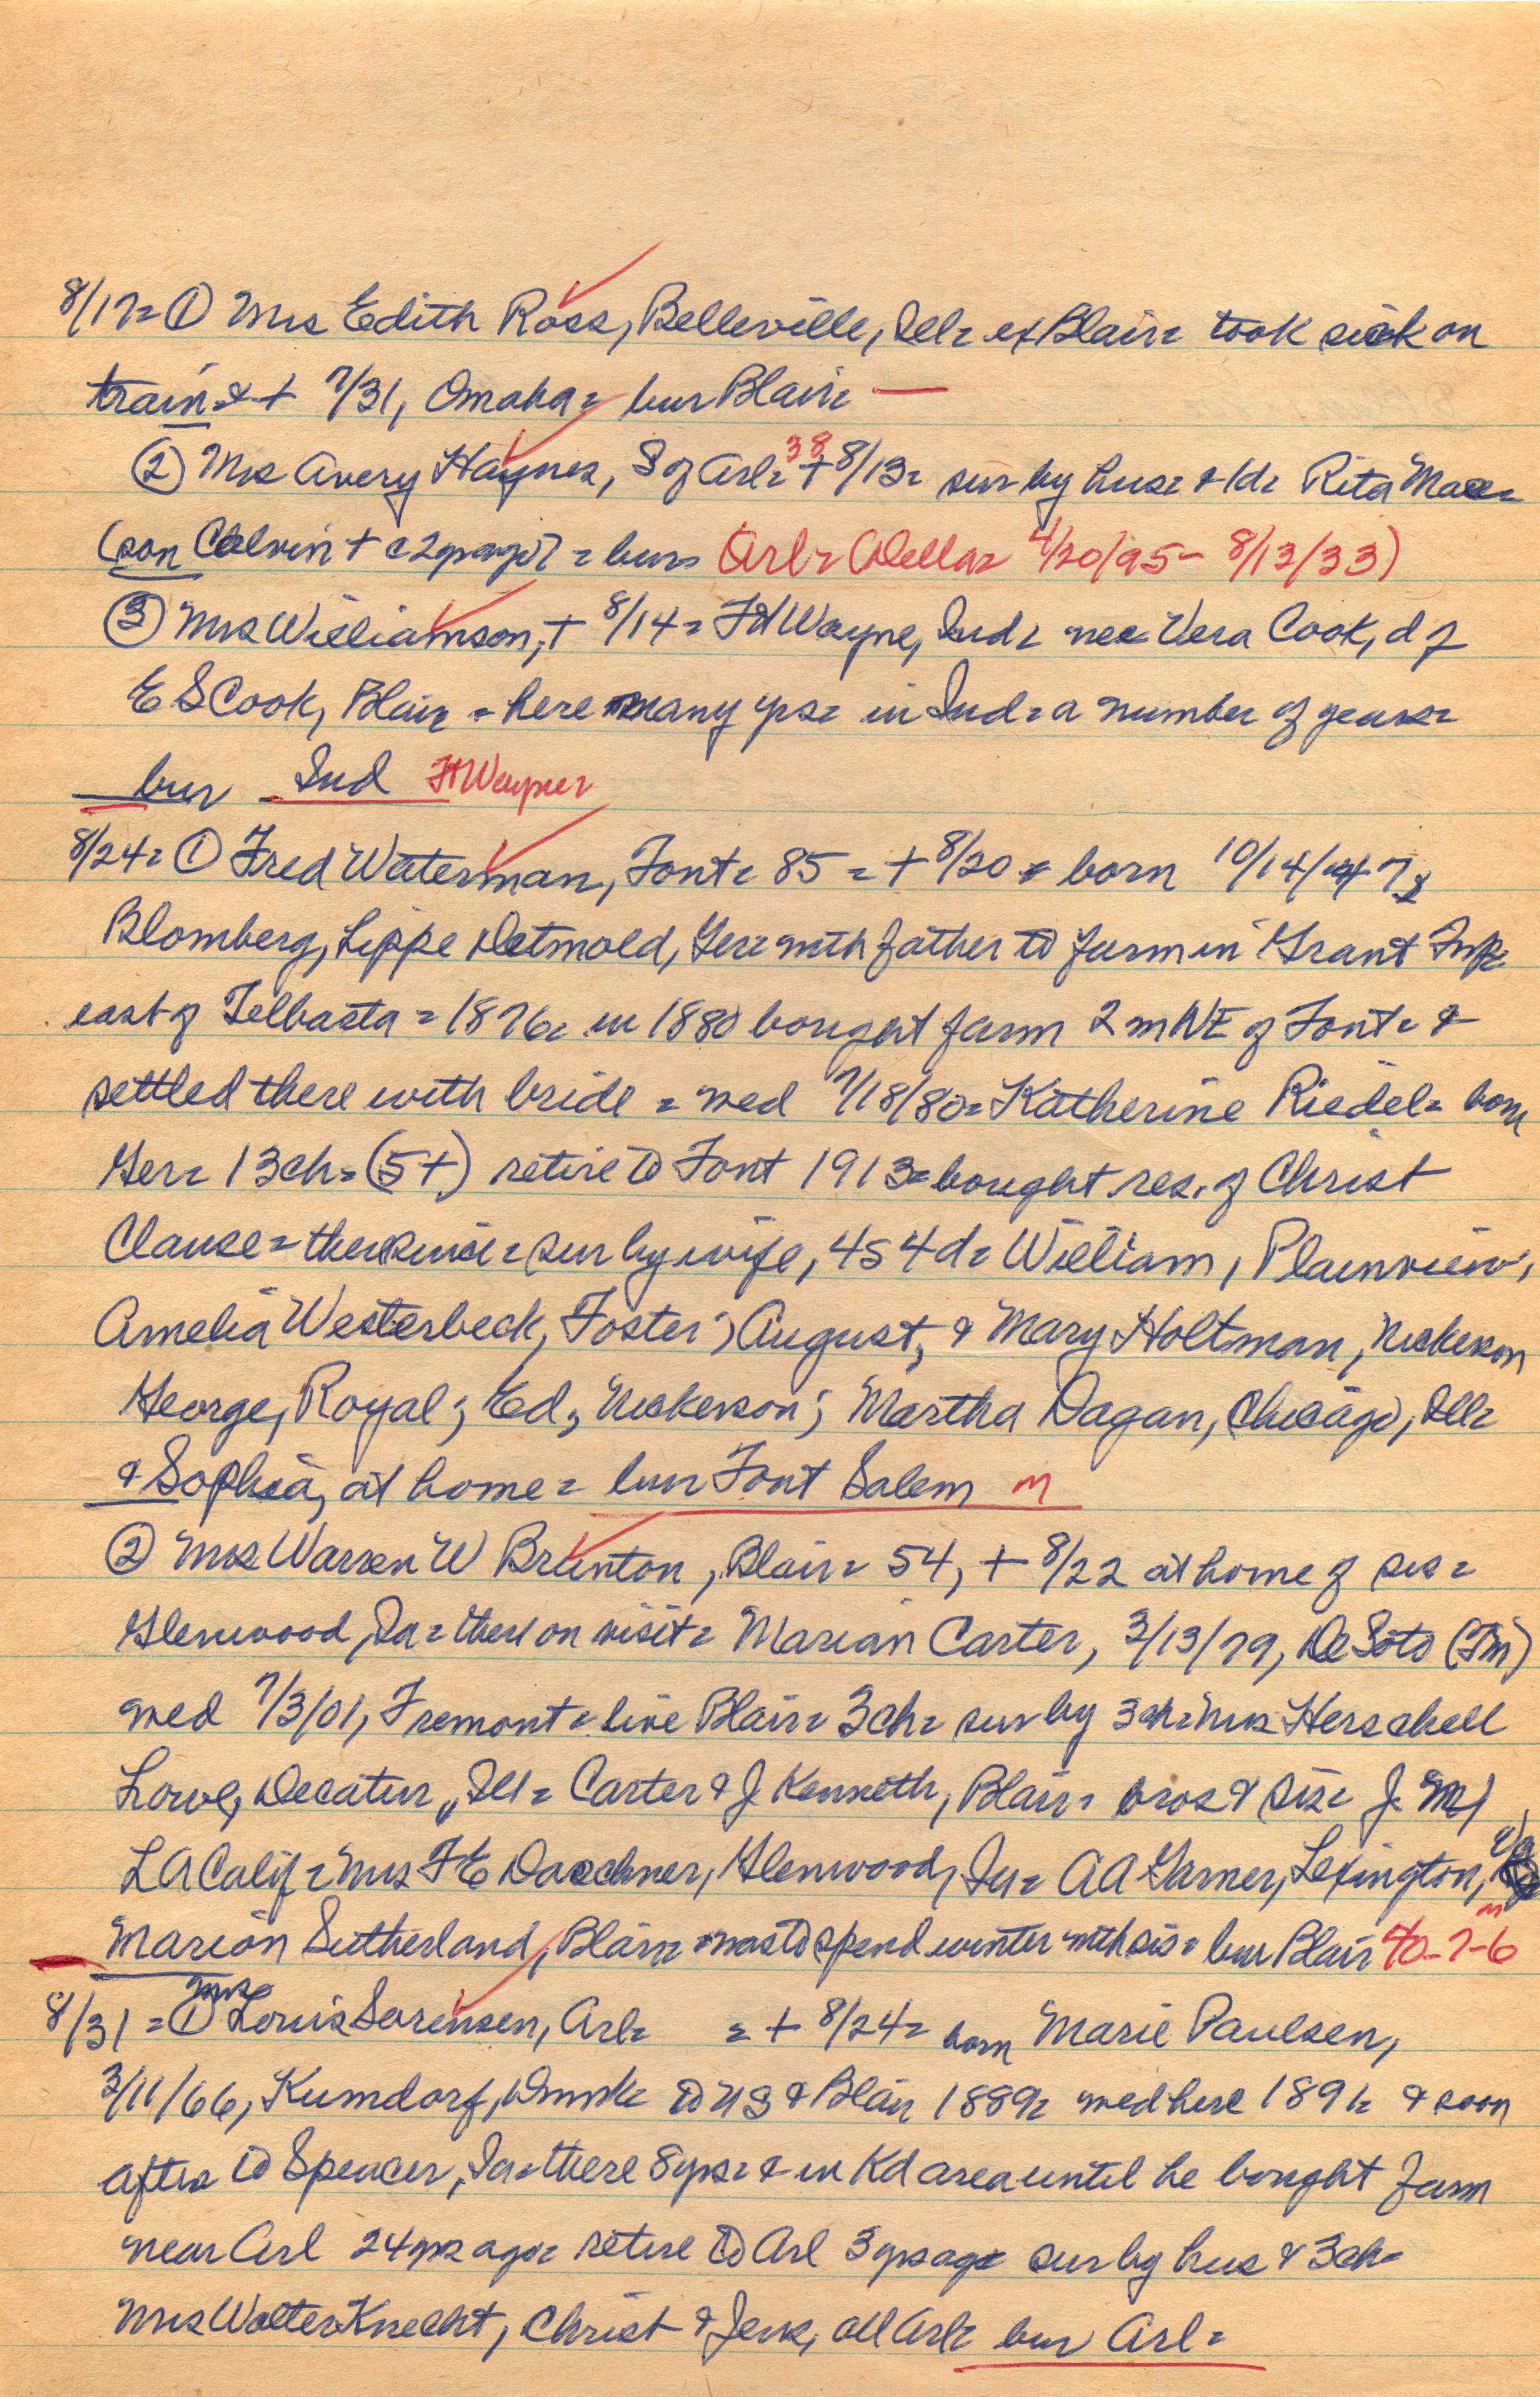 8/17= ① Mrs Edith Ross, Belleville, Ill= ex Blair= took sick on
train= & + 7/31, Omaha= bur Blair= —
② Mrs Avery Haynes, S of Arl= 38 + 8/13= sur by hus= & 1d= Rita Mae=
(son Calvin + c 2 yrs ago) = bur= Arl= (Della= 4/20/95 - 8/13/33)
③ Mrs Williamson, + 8/14= Ft Wayne, Ind= nee Vera Cook, d of
E S Cook, Blair = here many yrs= in Ind= a number of years=
bur Ind Ft Wayne=
8/24= ① Fred Waterman, Font= 85 = + 8/20 = born 10/14/47=
Blomberg, Lippe Detmold, Ger= with father to farm in Grant Twp=
east of Telbasta = 1876= in 1880 bought farm 2 m NE of Font= &
settled there with bride = wed 7/18/80= Katherine Riedel= born
Ger= 13 ch= (5+) retire to Font 1913= bought res. of Christ
Clause = there since = sur by wife, 4s 4d= William, Plainview;
Amelia Westerbeck, Foster; August, & Mary Holtman, Nickerson
George, Royal; Ed, Nickerson; Martha Dagan, Chicago, Ill=
& Sophia, at home = bur Font Salem m
② Mrs Warren W Brunton, Blair= 54, + 8/22 at home of sis=
Glenwood, Ia= there on visit= Marian Carter, 3/13/79, DeSoto
wed 7/3/01, Fremont= live Blair= 3ch= sur by 3 ch= Mrs Herschell
Lowe, Decatur, Ill= Carter & J Kenneth, Blair= bros & sis= J M,
LA Calif= Mrs F E Daschner, Glenwood, Ia= A A Garner, Lexington,
Marion Sutherland, Blair= was to spend winter with sis= bur Blair m 40-7-6
8/31 = ① Mrs Louis Sorensen, Arl= = + 8/24= born Marie Paulsen,
3/11/66, Kumdorf, Dnmk= to US & Blair 1889= wed here 1891= & soon
after to Spencer, Ia= there 8 yrs= & in Kd area until he bought farm
near Arl 24 yrs ago= retire to Arl 3 yrs ago= sur by hus & 3ch=
Mrs Walter Knecht, Christ & Jens, all Arl= bur Arl=